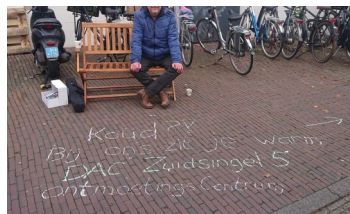 Koud ??
Bij ons zit je warm
DAC Zuidsingel 5
ontmoetingsCentrum